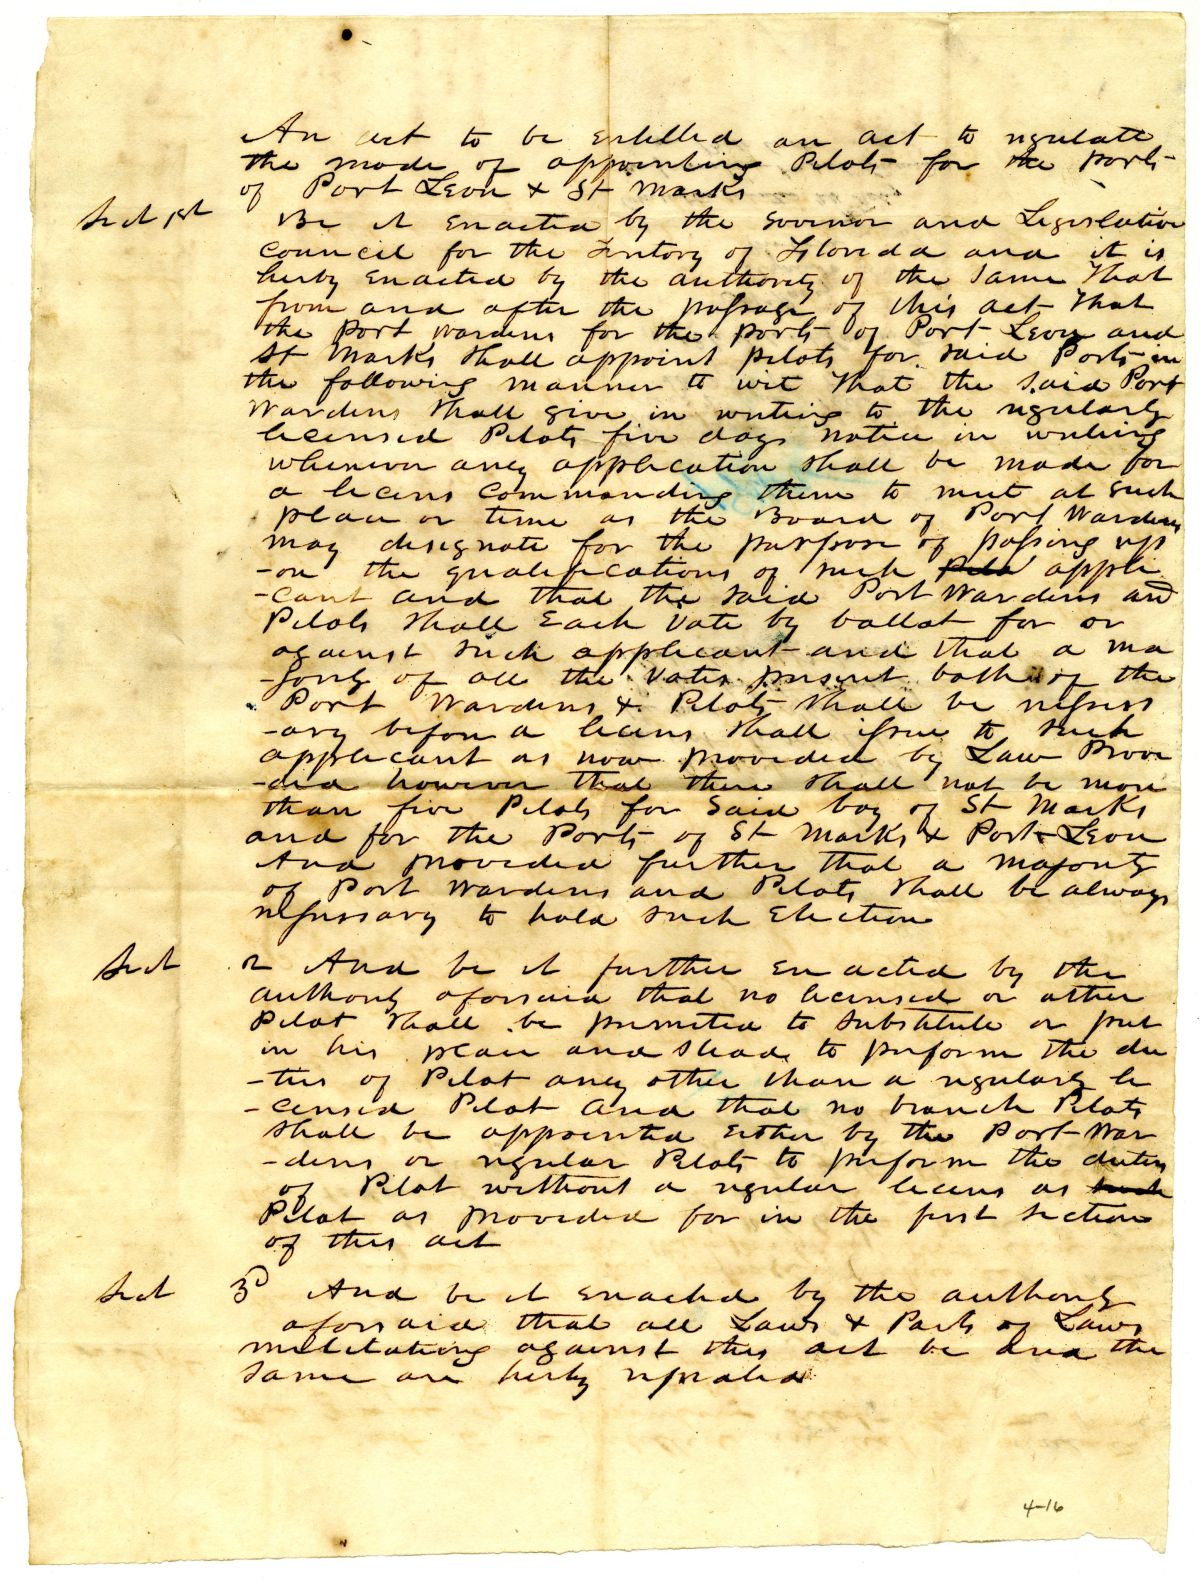 An act to be entitled an act to regulate
the mode of appointing Pilots for the ports
of Port Leon & St Marks
Sect 1st Be it Enacted by the Govenor and Legislative
council for the Teritory of Florida and it is
herby Enacted by the authority of the Same That
from and after the passage of this act That
the port wardens for the ports of Port Leon and
St Marks Shall appoint pilots for said Ports in
the following manner to wit That the Said Port
Wardens Shall give in writing to the regularly
licensed Pilots five days notice in writing
whenever any application Shall be made for
a licens Commanding them to meet at Such
place or time as the Board of Port Wardens
may designate for the purpose of passing up
-on the qualifications of such Pilo appli
-cant and that the Said Port Wardens and
Pilots Shall Each Vote by ballot for or
against Such applicant and that a ma
-jority of all the Votes present both of the
Port Wardens & Pilots Shall be nessess
-ary before a licens Shall issue to Such
applicant as now provided by Law Provi
-ded however that there Shall not be more
than five Pilots for Said bay of St Marks
and for the Ports of St Marks & Port Leon
And provided further that a majority
of Port Wardens and Pilots Shall be always
nessessary to hold Such Election
Sect 2 And be it further Enacted by the
authority aforsaid that no licensed or other
Pilot Shall be permited to Substitute or put
in his place and Stead to perform the du
-ties of Pilot any other than a regularly li
-censed Pilot and that no branch Pilots
Shall be appointed Either by the Port War
-dens or regular Pilots to perform the duties
of Pilot without a regular licens as such
Pilot as provided for in the first Section
of this act
Sect 3d And be it Enacted by the authority
aforsaid that all Laws & Parts of Laws
militating against this act be and the
Same are herby repealed
4-16